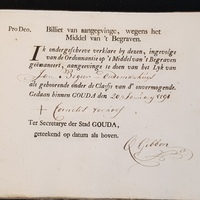 Pro Deo.
Billiet van aangevinge, wegens het
Middel van 't Begraven.
Ik ondergeschreve verklare by dezen, ingevolge
van de Ordonnantie op 't Middel van 't Begraven
geëmaneert, aangevinge te doen van het Lyk van
Jan
als gehoorende onder de Classis van d' onvermogende.
Gedaan binnen GOUDA, den 20
Cornelis
Ter Secretarye der Stad GOUDA,
geteekend op datum als boven.